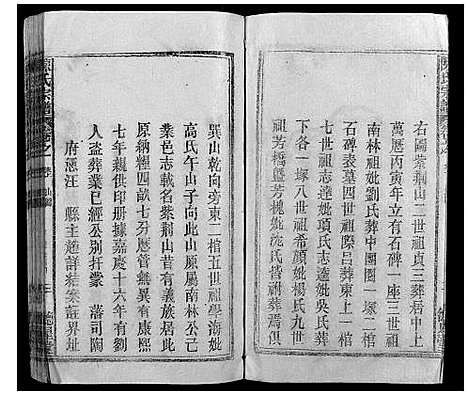 右圖紫荊山二世祖貞三葬居中上
萬曆丙寅年立有石碑一座三世祖
南林祖妣劉氏葬中團圈一塚二棺
石碑表墓四世祖際昌葬東上一棺
七世祖志達妣項氏志遠妣吳氏葬
下各一塚八世祖希顔妣楊氏九世
祖芳橋暨芳槐妣沈氏皆祔葬焉俱
巽山乾向旁東二棺五世祖學海妣
高氏午山子向此山原屬南林公己
業邑志載名紫荊山昔有義族居此
原納糧四畝七分歷管無異有康熙
七年親供印册據嘉慶十六年有劉
人盜葬業已經公別扦 藩司陶
府憲汪 縣主趙詳結案莊界址